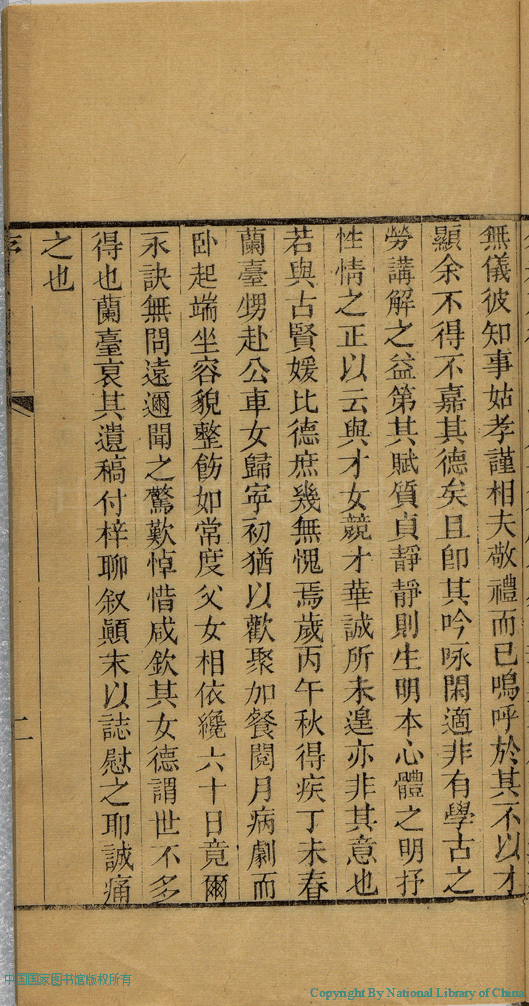 無儀彼知事姑孝謹相夫敬禮而已嗚呼於其不以才
顯余不得不嘉其德矣且卽其吟咏閑適非有學古之
勞講解之益第其賦質貞靜靜則生明本心體之明抒
性情之正以云與才女競才華誠所未遑亦非其意也
若與古賢媛比德庶幾無愧焉歲丙午秋得疾丁未春
蘭臺甥赴公車女歸寜初猶以歡聚加餐閱月病劇而
卧起端坐容貌整飭如常度父女相依纔六十日竟爾
永訣無問遠邇聞之驚歎悼惜咸欽其女德謂世不多
得也蘭臺哀其遺稿付梓聊叙顚末以誌慰之耶誠痛
之也
二
中国国家图书馆版权所有
Copyright By National Library of China